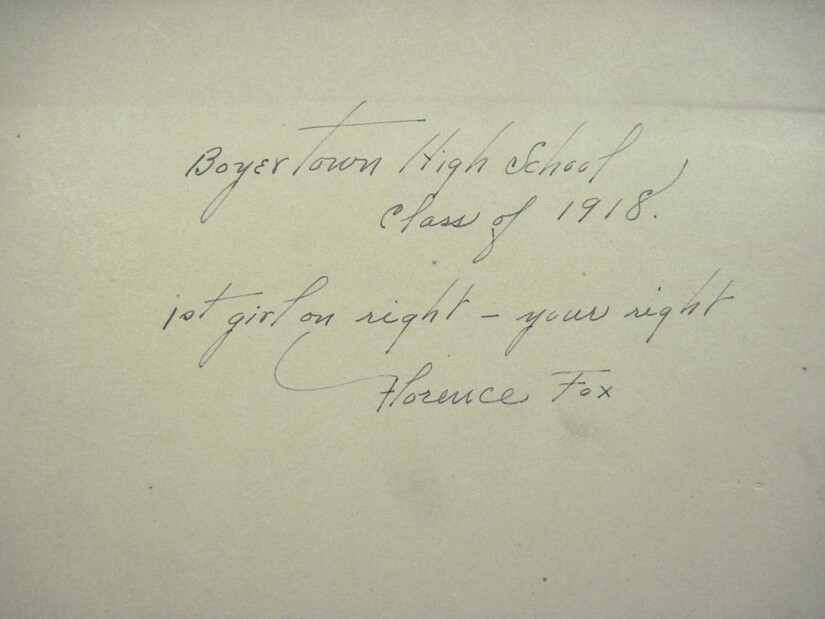 Boyertown High School
Class of 1918.
1st girl on right – your right
Florence Fox